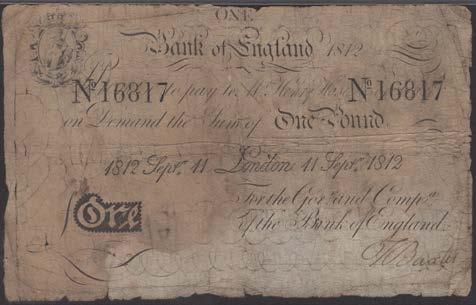 ONE
Bank of England 1812
Nº16817 to pay to Mr. Henry Hase Nº16817
on Demand the Sum of One Pound
1812 Sepr. 11 London 11 Sepr. 1812
For the Govr. and Compa.
of the Bank of England.
One